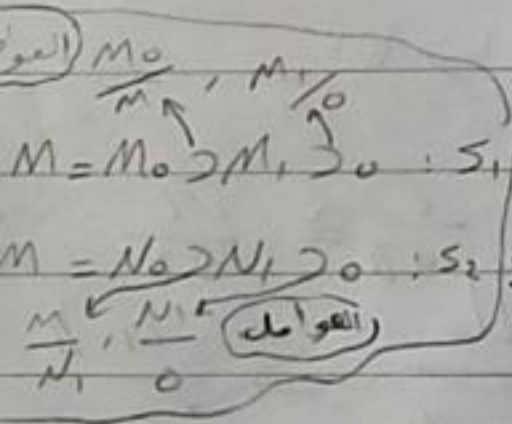 العوا M₀/M , M₁/0
M = M₀ ⊃ M₁ ⊃ 0 : S₁
M = N₀ ⊃ N₁ ⊃ 0 : S₂
M/N₁ , N₁/0 العوامل